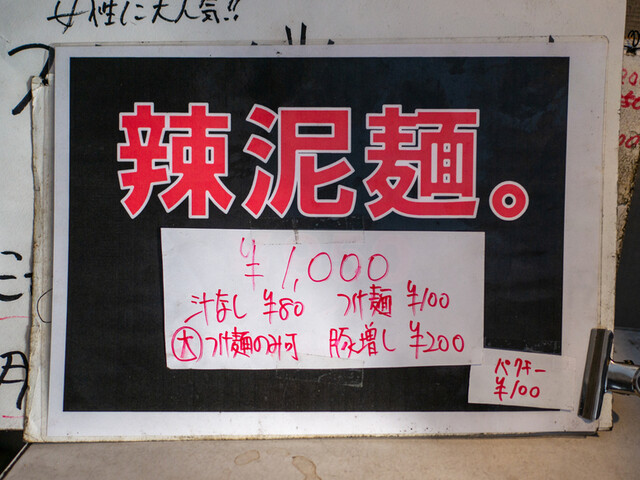 女性に大人気!!
辣泥麺。
¥1,000
汁なし ¥80 つけ麺 ¥100
大 つけ麺のみ可 豚増し ¥200
パクチー
¥100